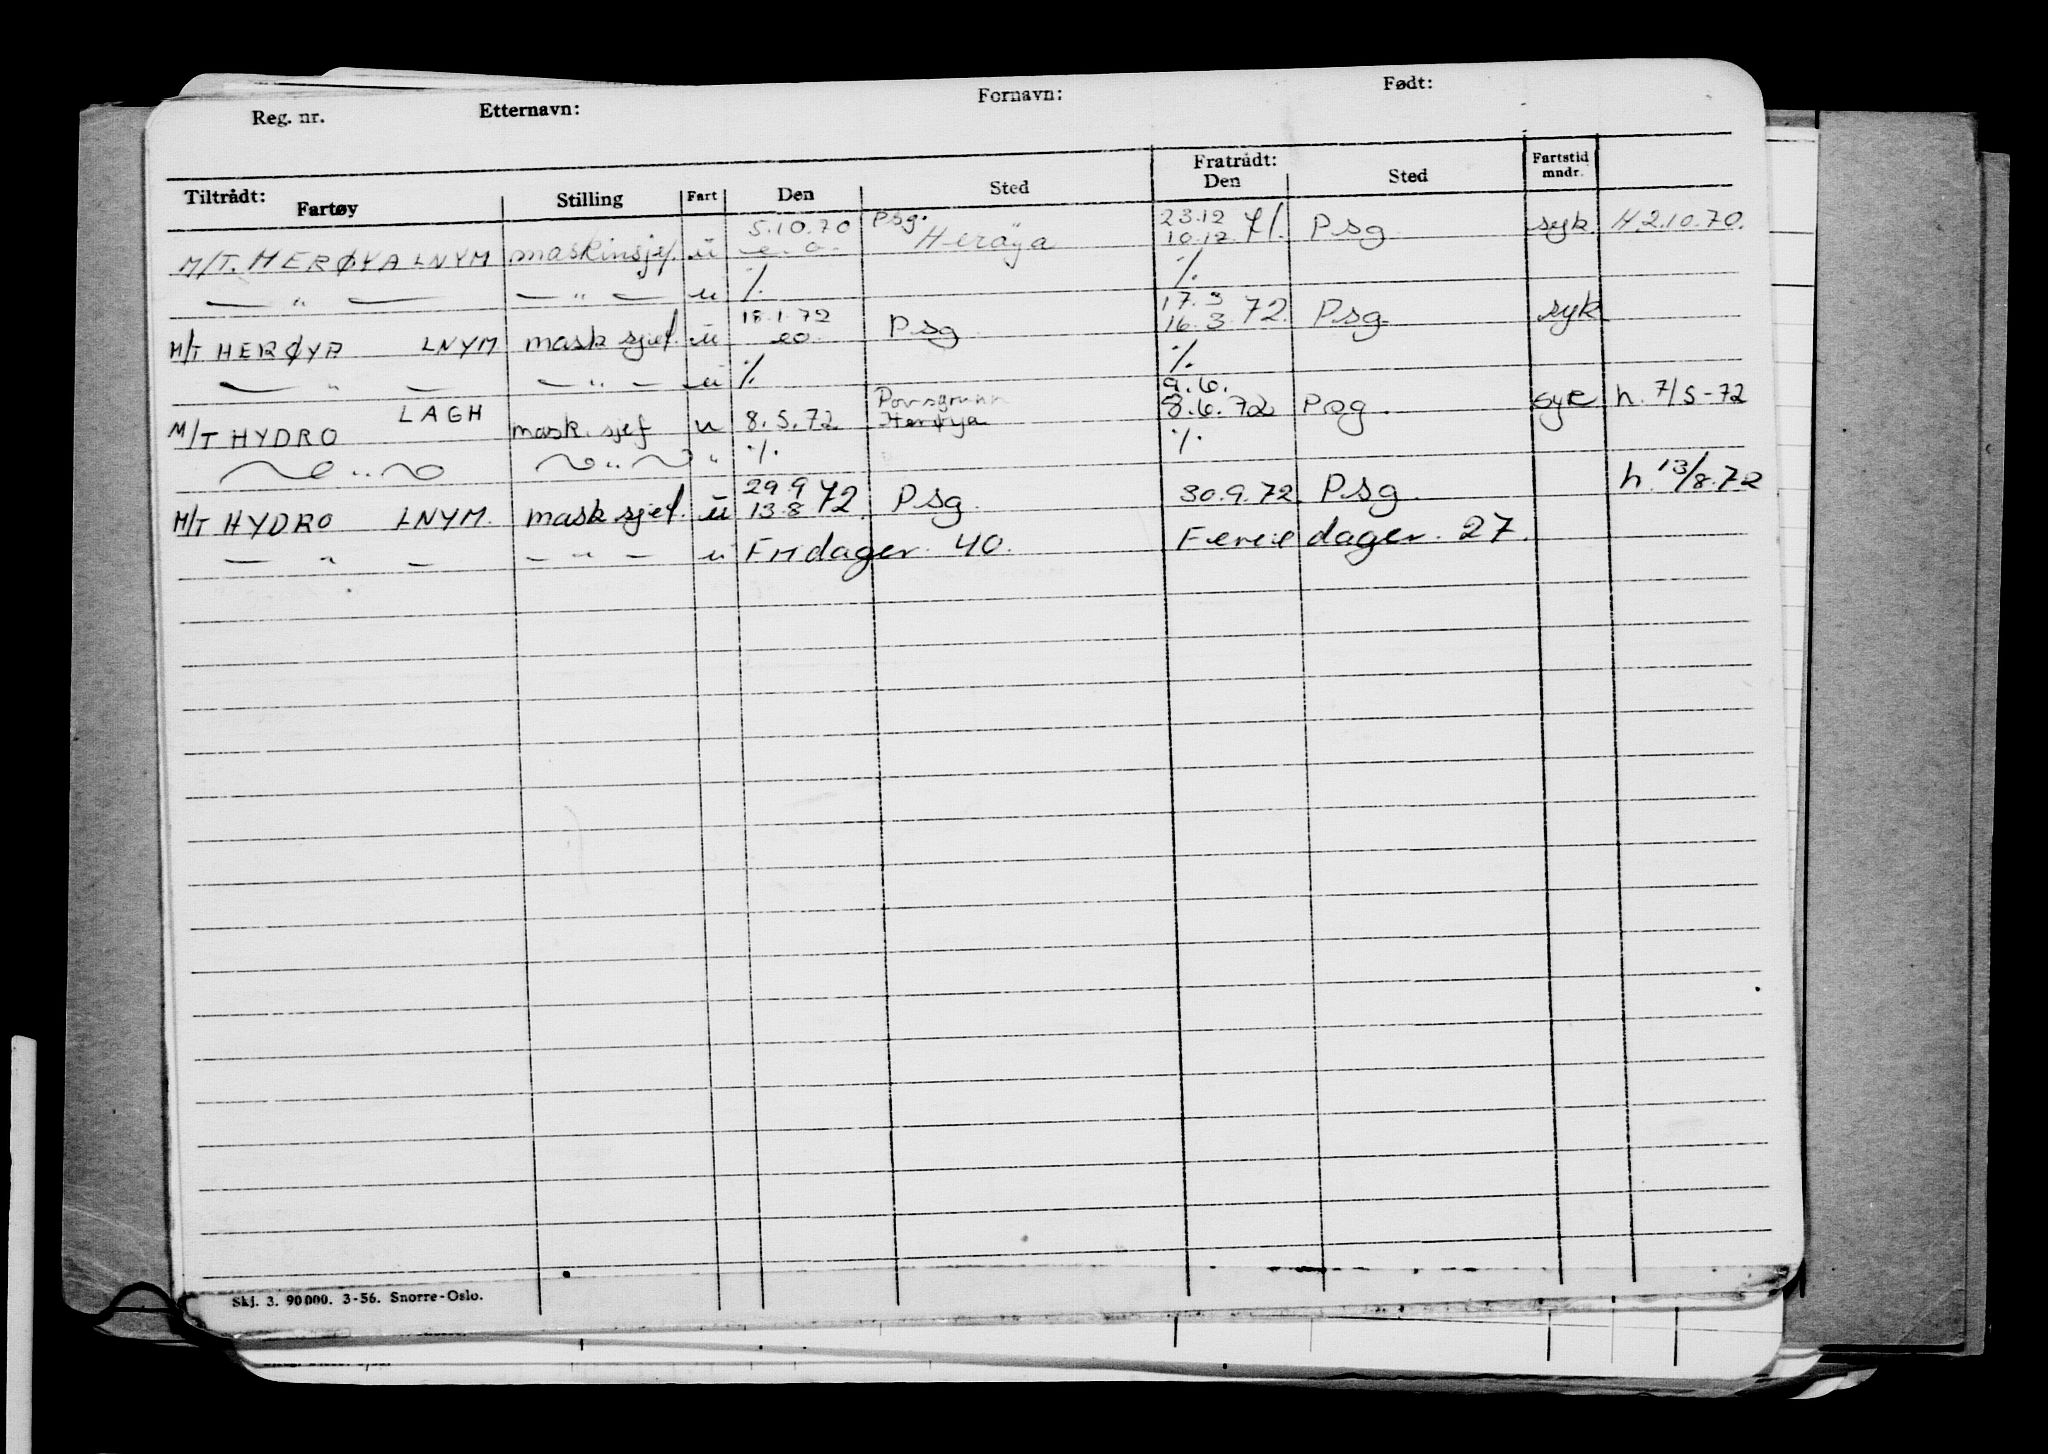 Reg. nr. Etternavn: Fornavn: Født:
Tiltrådt: Fratrådt:
Fartøy Stilling Fart Den Sted Den Sted Fartstid mndr.
5.10.70 Psg. 23.12
M/T. HERØYA LNYM maskinsjef. u e.o. Herøya 10.12. 71. Psg syk. H 2.10.70.
— " — — " — u % %
18.1.72 17.3
M/T HERØYA LNYM mask sjef. u eo. Psg 16.3 72. Psg. syk
— " — — " — u % %
LAGH Porsgrunn 9.6.
M/T HYDRO mask. sjef u 8.5.72 Herøya 8.6.72 Psg. syk h. 7/5-72
— " — — " — " % %
29.9
M/T HYDRO LNYM. mask sjef. u 13.8 72. Psg. 30.9.72 Psg. h. 13/8.72
— " — — " — u Fridager. 40. Ferie dager. 27.
Skj. 3. 90 000. 3-56. Snorre-Oslo.